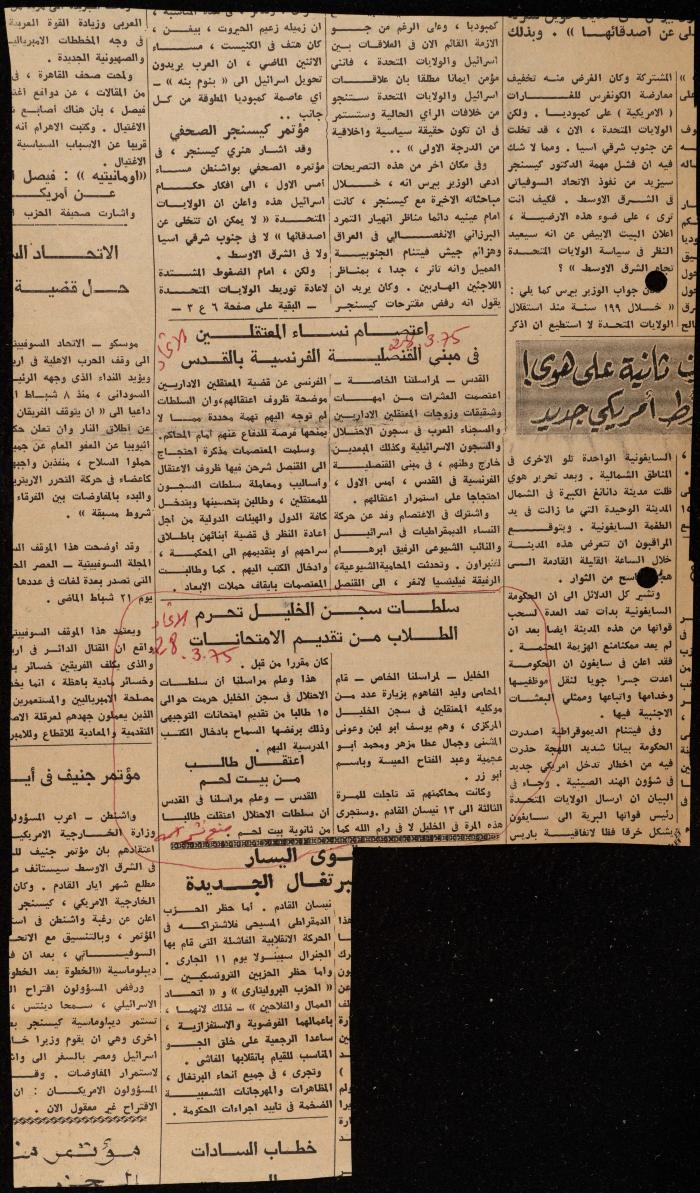 المشتركة وكان الغرض منه تخفيف
معارضة الكونغرس للغارات
( الامريكية ) على كمبوديا . ولكن
الولايات المتحدة ، الان ، قد تخلت
عن جنوب شرقي اسيا . ومما لا شك
فيه ان فشل مهمة الدكتور كيسنجر
سيزيد من نفوذ الاتحاد السوفياتي
في الشرق الاوسط . فكيف انت
ترى ، على ضوء هذه الارضية ،
اعلان البيت الابيض عن انه سيعيد
النظر في سياسة الولايات المتحدة
تجاه الشرق الاوسط » ؟
جواب الوزير بيرس كما يلي :
« خلال ١٩٩ سنة منذ استقلال
الولايات المتحدة لا استطيع ان اذكر
ثانية على هوى!
أمريكي جديد
السايغونية الواحدة تلو الاخرى في
المناطق الشمالية . وبعد تحرير هوي
ظلت مدينة دانانغ الكبيرة في الشمال
المدينة الوحيدة التي ما زالت في يد
الطغمة السايغونية . ويتوقع
المراقبون ان تتعرض هذه المدينة
خلال الساعة القليلة القادمة الى
من الثوار .
وتشير كل الدلائل الى ان الحكومة
السايغونية بدات تعد العدة لسحب
قواتها من هذه المدينة ايضا بعد ان
لم يعد ممكنا منع الهزيمة المحتمة .
فقد اعلن في سايغون ان الحكومة
اعدت جسرا جويا لنقل موظفيها
وخدامها واتباعها وممثلي البعثات
الاجنبية فيها .
وفي فيتنام الديموقراطية اصدرت
الحكومة بيانا شديد اللهجة حذرت
فيه من اخطار تدخل امريكي جديد
في شؤون الهند الصينية . وجاء في
البيان ان ارسال الولايات المتحدة
رئيس قواتها البرية الى سايغون
يشكل خرقا فظا لاتفاقية باريس
كمبوديا ، وعلى الرغم من جو
الازمة القائم الان في العلاقات بين
اسرائيل والولايات المتحدة ، فانني
مؤمن ايمانا مطلقا بان علاقات
اسرائيل والولايات المتحدة ستنجو
من خلافات الراي الحالية وستستمر
في ان تكون حقيقة سياسية واخلاقية
من الدرجة الاولى » ..
وفي مكان اخر من هذه التصريحات
ادعى الوزير بيرس انه ، خلال
مباحثاته الاخيرة مع كيسنجر ، كانت
امام عينيه دائما مناظر انهيار التمرد
البرزاني الانفصالي في العراق
وهزائم جيش فيتنام الجنوبية
العميل وانه تاثر ، جدا ، بمناظر
اللاجئين الهاربين . وكان يريد ان
يقول انه رفض مقترحات كيسنجر
ان زميله زعيم الحيروت ، بيغن ،
كان هتف في الكنيست ، مساء
الاثنين الماضي ، ان العرب يريدون
تحويل اسرائيل الى « بنوم بنه » ـ
اي عاصمة كمبوديا المطوقة من كل
جانب ..
مؤتمر كيسنجر الصحفي
وقد اشار هنري كيسنجر ، في
مؤتمره الصحفي بواشنطن مساء
امس الاول ، الى افكار حكام
اسرائيل هذه واعلن ان الولايات
المتحدة « لا يمكن ان تتخلى عن
اصدقائها » لا في جنوب شرقي اسيا
ولا في الشرق الاوسط .
ولكن ، امام الضغوط المشتدة
لاعادة توريط الولايات المتحدة
ـ البقية على صفحة ٦ ع ٣ ـ
اعتصام نساء المعتقلين
في مبنى القنصلية الفرنسية بالقدس
الاتحاد
28.3.75
القدس ـ لمراسلنا الخاص ـ
اعتصمت العشرات من امهات
وشقيقات وزوجات المعتقلين الاداريين
والسجناء العرب في سجون الاحتلال
والسجون الاسرائيلية وكذلك المبعدين
خارج وطنهم ، في مبنى القنصلية
الفرنسية في القدس ، امس الاول ،
احتجاجا على استمرار اعتقالهم .
واشترك في الاعتصام وفد عن حركة
النساء الديمقراطيات في اسرائيل
والنائب الشيوعي الرفيق ابرهام
لفنبراون . وتحدثت المحامية الشيوعية،
الرفيقة فيليتسيا لانغر ، الى القنصل
الفرنسي عن قضية المعتقلين الاداريين
موضحة ظروف اعتقالهم،وان السلطات
لم توجه اليهم تهمة محددة مما لا
يمنحها فرصة للدفاع عنهم امام المحاكم.
وسلمت المعتصمات مذكرة احتجاج
الى القنصل شرحن فيها ظروف الاعتقال
واساليب ومعاملة سلطات السجون
للمعتقلين ، وطالبن بتحسينها وبتدخل
كافة الدول والهيئات الدولية من اجل
اعادة النظر في قضية ابنائهن باطلاق
سراحهم او بتقديمهم الى المحكمة ،
وادخال الكتب اليهم . كما وطالبت
المعتصمات بايقاف حملات الابعاد .
سلطات سجن الخليل تحرم
الطلاب من تقديم الامتحانات
الاتحاد
28.3.75
الخليل ـ لمراسلنا الخاص ـ قام
المحامي وليد الفاهوم بزيارة عدد من
موكليه المعتقلين في سجن الخليل
المركزي ، وهم يوسف ابو لبن وعوني
المشني وجمال عطا مزهر ومحمد ابو
عجمية وعبد الفتاح العيسة وباسم
ابو زر .
وكانت محاكمتهم قد تاجلت للمرة
الثالثة الى ١٣ نيسان القادم .وستجري
هذه المرة في الخليل لا في رام الله كما
كان مقررا من قبل .
هذا وعلم مراسلنا ان سلطات
الاحتلال في سجن الخليل حرمت حوالي
١٥ طالبا من تقديم امتحانات التوجيهي
وذلك برفضها السماح بادخال الكتب
المدرسية اليهم .
اعتقال طالب
من بيت لحم
القدس ـ وعلم مراسلنا في القدس
ان سلطات الاحتلال اعتقلت طالبا
من ثانوية بيت لحم
قوى اليسار
البرتغال الجديدة
نيسان القادم . اما حظر الحزب
الدمقراطي المسيحي فلاشتراكه في
الحركة الانقلابية الفاشلة التي قام بها
الجنرال سبينولا يوم ١١ الجاري .
واما حظر الحزبين التروتسكيين ـ
« الحزب البروليتاري » و « اتحاد
العمال والفلاحين » ـ فذلك لانهما ،
باعمالهما الفوضوية والاستفزازية ،
ساعدا الرجعية على خلق الجو
المناسب للقيام بانقلابها الفاشي .
وتجري ، في جميع انحاء البرتغال ،
المظاهرات والمهرجانات الشعبية
الضخمة في تاييد اجراءات الحكومة .
خطاب السادات
العربي وزيادة القوة
في وجه المخططات الامبريالية
والصهيونية الجديدة .
ولمحت صحف القاهرة ، في
من المقالات ، عن دوافع
فيصل ، بان هناك اصابع
الاغتيال . وكتبت الاهرام انه
قريبا عن الاسباب السياسية
الاغتيال .
«اومانيتيه» : فيصل
عن أمريكا
واشارت صحيفة الحزب
الاتحاد
حل قضية
موسكو ـ الاتحاد السوفييتي
الى وقف الحرب الاهلية في
ويؤيد النداء الذي وجهه
السوداني ، منذ ٨ شباط
داعيا الى « ان يتوقف الفريقان
عن اطلاق النار وان تعلن
اثيوبيا عن العفو العام عن
حملوا السلاح ، منفذين
كاعضاء في حركة التحرر
والبدء بالمفاوضات بين الفرقاء
شروط مسبقة » .
وقد أوضحت هذا الموقف
المجلة السوفييتية ـ العصر
التي تصدر بعدة لغات في عددها
يوم ٢١ شباط الماضي .
ويعتمد هذا الموقف السوفييتي
واقع ان القتال الدائر في
والذي يكلف الفريقين خسائر
وخسائر مادية باهظة ، انما
مصلحة الامبرياليين والمستعمرين
الذين يعملون جهدهم لعرقلة
التقدمية والمعادية للاقطاع
مؤتمر جنيف في
واشنطن ـ اعرب المسؤولون
وزارة الخارجية الامريكية
اعتقادهم بان مؤتمر جنيف
في الشرق الاوسط سيستانف
مطلع شهر ايار القادم . وكان
الخارجية الامريكي ، كيسنجر
اعلن عن رغبة واشنطن في
المؤتمر ، وبالتنسيق مع
السوفياتي ، بعد ان
ديبلوماسية «الخطوة بعد
ورفض المسؤولون اقتراح
الاسرائيلي ، سمحا دينتس ،
تستمر ديبلوماسية كيسنجر
اخرى وهي ان يقوم وزيرا
اسرائيل ومصر بالسفر الى
لاستمرار المفاوضات .
المسؤولون الامريكان : ان
الاقتراح غير معقول الان .
مؤتمر